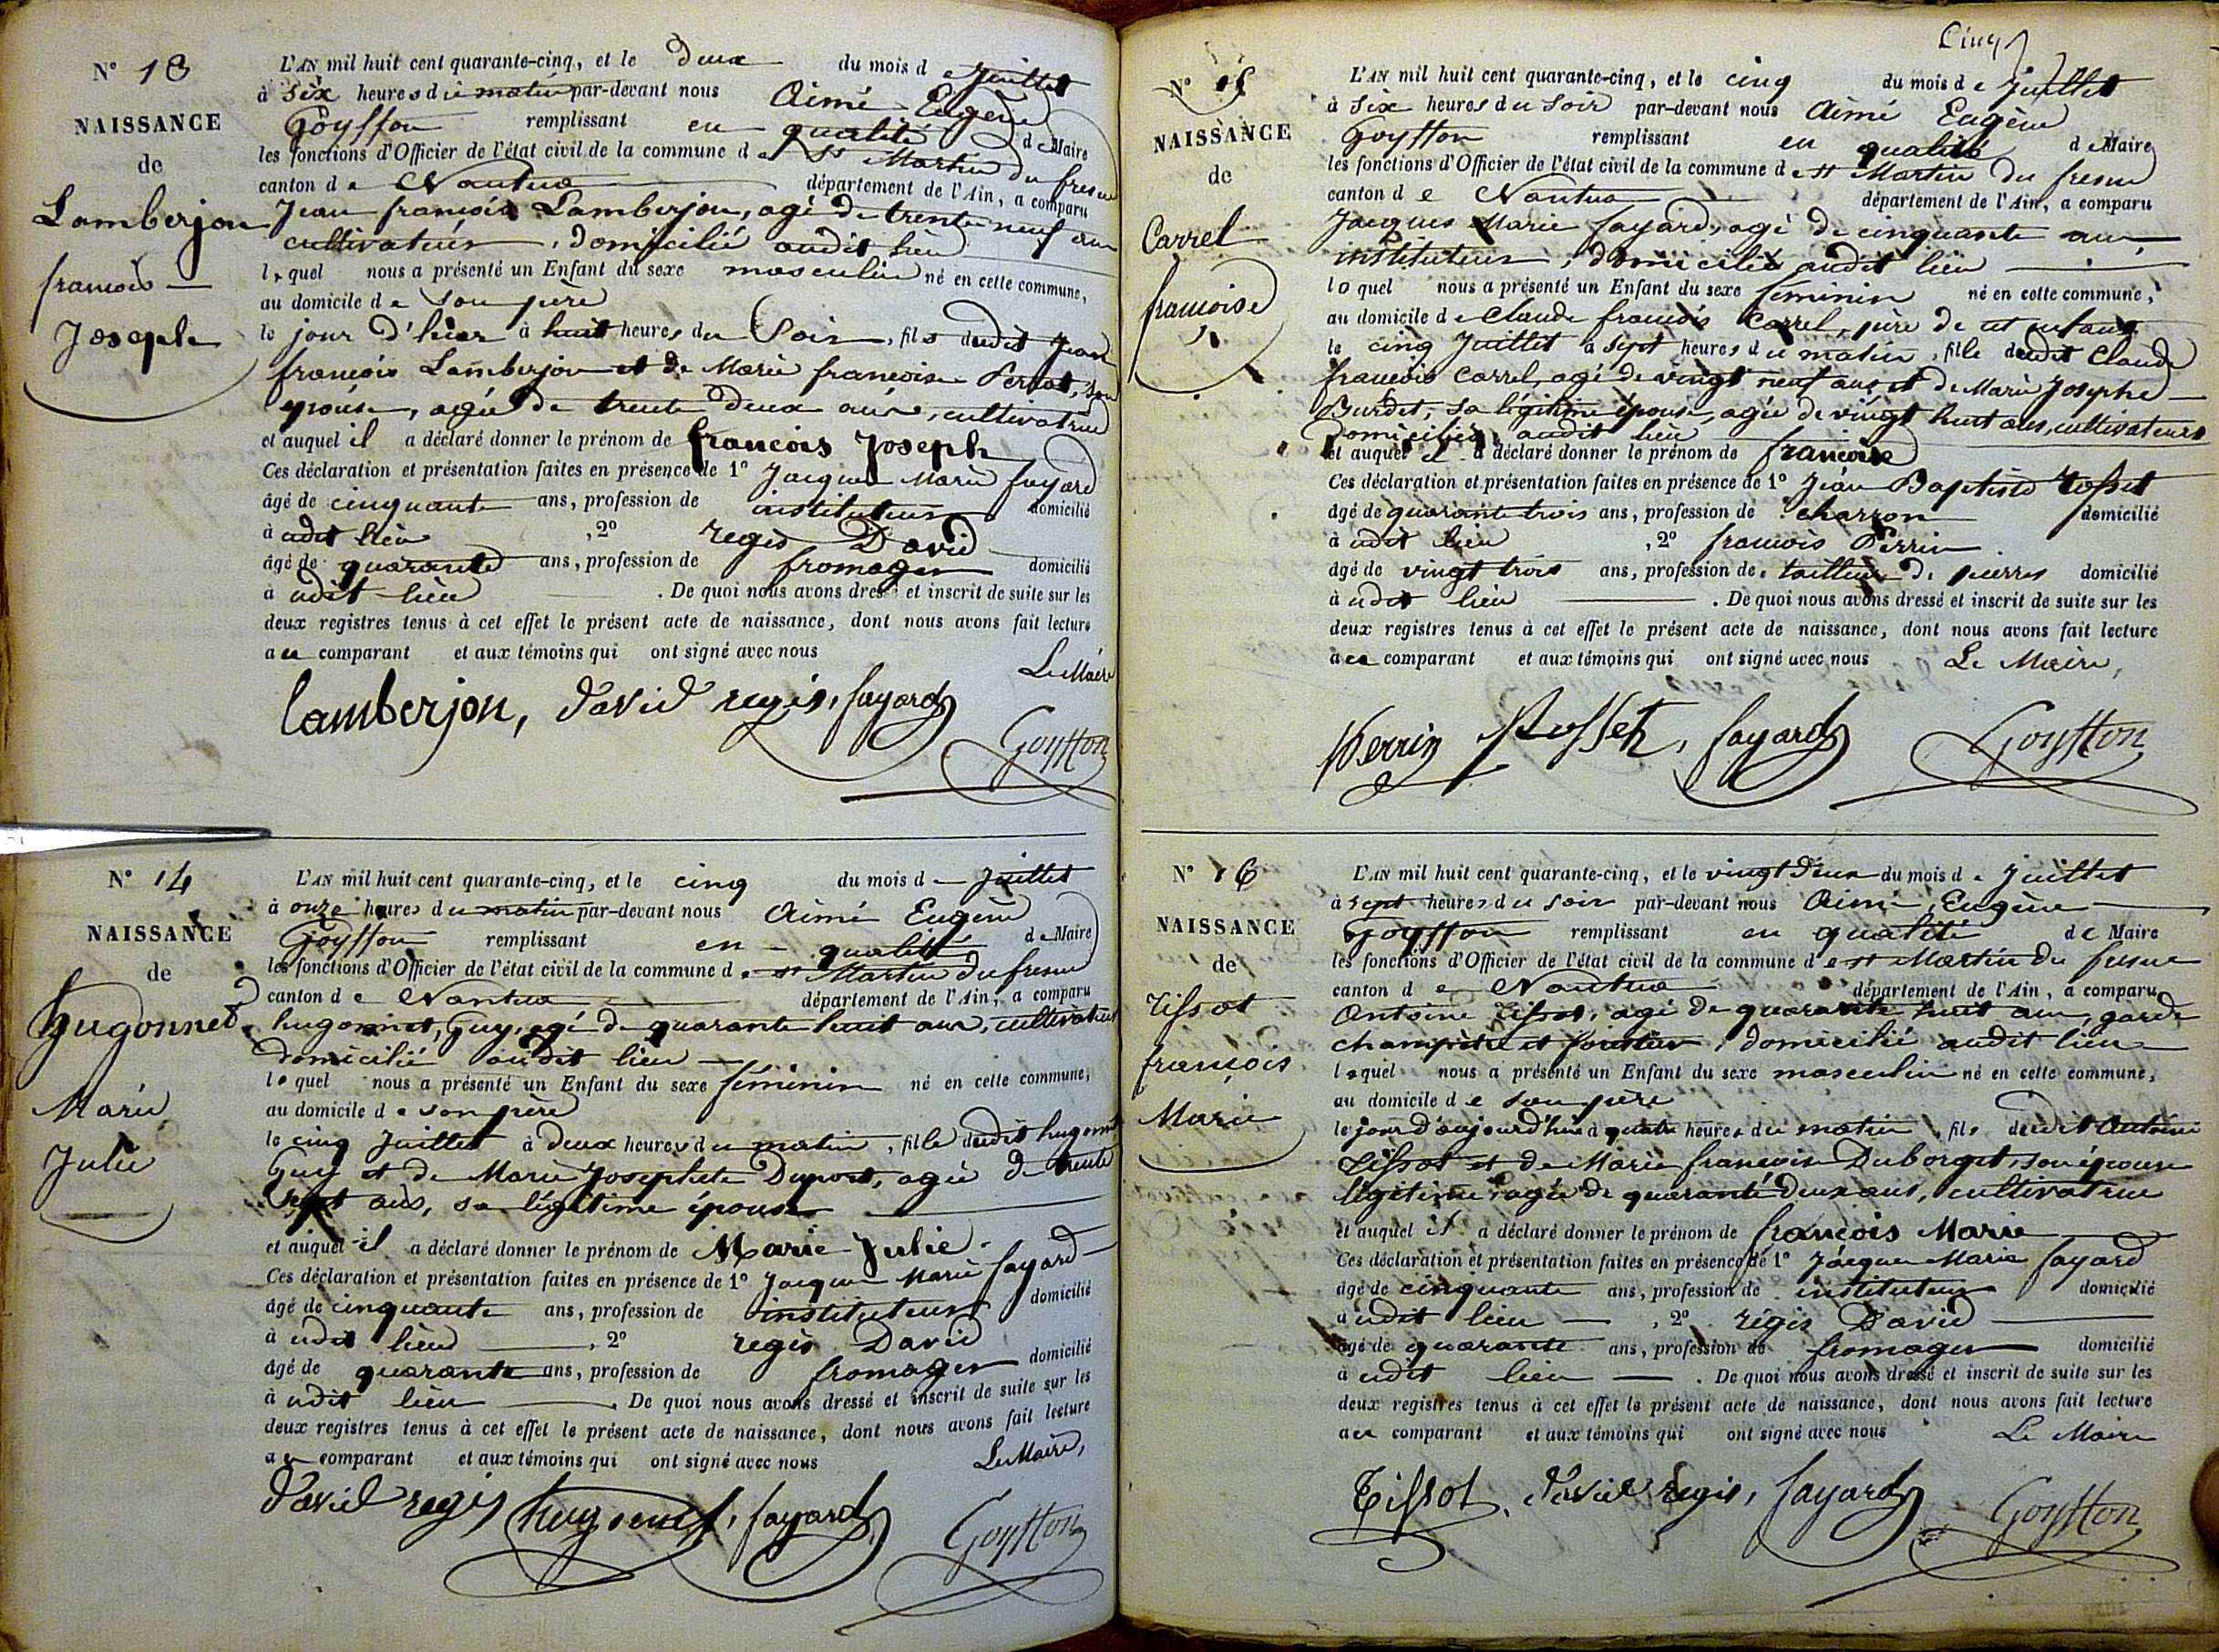 N° 13
NAISSANCE
de
Lamberjon
francois
Joseph
L'AN mil huit cent quarante-cinq, et le deux du mois de Juillet
à six heures du matin par-devant nous Aimé Eugène
Goyffon remplissant en qualité de Maire
les fonctions d'Officier de l'état civil de la commune de St Martin du fresne
canton de Nantua département de l'Ain, a comparu
Jean françois Lamberjon, agé de trente neuf ans
cultivateur, domicilié audit lieu
lequel nous a présenté un Enfant du sexe masculin né en cette commune,
au domicile de son père
le jour d'hier à huit heures du soir, fils dudit Jean
françois Lamberjon et de Marie francoise Perrot, son
épouse, agée de trente deux ans, cultivatrice
et auquel il a déclaré donner le prénom de francois Joseph
Ces déclaration et présentation faites en présence de 1° Jacques Marie fayard
âgé de cinquante ans, profession de instituteur domicilié
à udit lieu , 2° regis David
âgé de quarante ans, profession de fromager domicilié
à udit lieu . De quoi nous avons dressé et inscrit de suite sur les
deux registres tenus à cet effet le présent acte de naissance, dont nous avons fait lecture
au comparant et aux témoins qui ont signé avec nous
Le Maire
lamberjon, david regis, fayard
Goyffon
N° 14
NAISSANCE
de
hugonnet
Marie
Julie
L'AN mil huit cent quarante-cinq, et le cinq du mois de Juillet
à onze heures du matin par-devant nous Aimé Eugène
Goyffon remplissant en qualité de Maire
les fonctions d'Officier de l'état civil de la commune de st Martin du fresne
canton de Nantua département de l'Ain, a comparu
hugonnet, Guy, agé de quarante huit ans, cultivateur
domicilié audit lieu
lequel nous a présenté un Enfant du sexe féminin né en cette commune,
au domicile de son père
le cinq Juillet à deux heures du matin, fille dudit hugonnet
Guy et de Marie Josephete Duport, agée de trente
sept ans, sa légitime épouse
et auquel il a déclaré donner le prénom de Marie Julie
Ces déclaration et présentation faites en présence de 1° Jacques Marie fayard
âgé de cinquante ans, profession de instituteur domicilié
à udit lieu , 2° regis David
âgé de quarante ans, profession de fromager domicilié
à udit lieu . De quoi nous avons dressé et inscrit de suite sur les
deux registres tenus à cet effet le présent acte de naissance, dont nous avons fait lecture
au comparant et aux témoins qui ont signé avec nous
Le Maire,
david regis hugonnet, fayard
Goyffon
Cinq
N° 15
NAISSANCE
de
Carrel
francoise
L'AN mil huit cent quarante-cinq, et le cinq du mois de Juillet
à six heures du soir par-devant nous Aimé Eugène
Goyffon remplissant en qualité de Maire
les fonctions d'Officier de l'état civil de la commune de st Martin du fresne
canton de Nantua département de l'Ain, a comparu
Jacques Marie fayard, agé de cinquante ans
instituteur, domicilié audit lieu
lequel nous a présenté un Enfant du sexe féminin né en cette commune,
au domicile de Claude françois Carrel, père de cet enfant
le cinq Juillet à sept heures du matin, fille dudit Claude
françois Carrel, agé de vingt neuf ans et de Marie Josephe
Burdet, sa légitime épouse, agée de vingt huit ans, cultivateurs
domiciliés audit lieu
et auquel il a déclaré donner le prénom de francoise
Ces déclaration et présentation faites en présence de 1° Jean Baptiste Rosset
âgé de quarante trois ans, profession de charron domicilié
à udit lieu , 2° francois Perrin
âgé de vingt trois ans, profession de tailleur de pierres domicilié
à udit lieu . De quoi nous avons dressé et inscrit de suite sur les
deux registres tenus à cet effet le présent acte de naissance, dont nous avons fait lecture
au comparant et aux témoins qui ont signé avec nous Le Maire,
Perrin Rosset, fayard Goyffon
N° 16
NAISSANCE
de
Tissot
françois
Marie
L'AN mil huit cent quarante-cinq, et le vingt deux du mois de Juillet
à sept heures du soir par-devant nous Aimé Eugène
Goyffon remplissant en qualité de Maire
les fonctions d'Officier de l'état civil de la commune de st Martin du fresne
canton de Nantua département de l'Ain, a comparu
Antoine Tissot, agé de quarante huit ans, garde
champêtre et forestier, domicilié audit lieu
lequel nous a présenté un Enfant du sexe masculin né en cette commune,
au domicile de son père
le jour d'aujourd'hui à quatre heures du matin, fils dudit Antoine
Tissot et de Marie francoise Duborget, son épouse
légitime, agée de quarante deux ans, cultivatrice
et auquel il a déclaré donner le prénom de françois Marie
Ces déclaration et présentation faites en présence de 1° Jacques Marie fayard
âgé de cinquante ans, profession de instituteur domicilié
à udit lieu , 2° régis David
âgé de quarante ans, profession de fromager domicilié
à udit lieu . De quoi nous avons dressé et inscrit de suite sur les
deux registres tenus à cet effet le présent acte de naissance, dont nous avons fait lecture
au comparant et aux témoins qui ont signé avec nous Le Maire
Tissot, david regis, fayard Goyffon